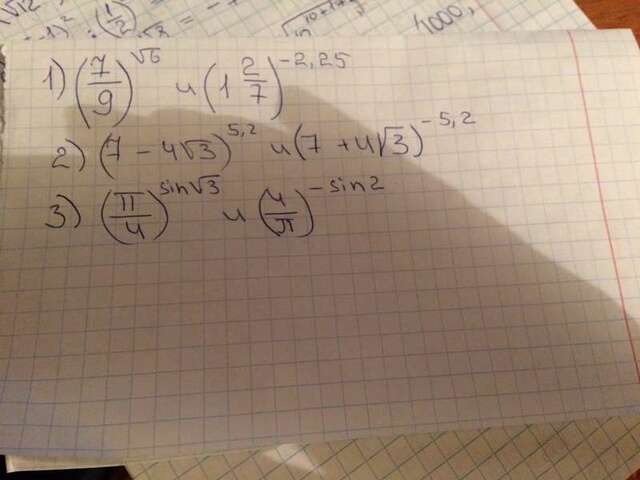 1000,
1) (7/9)^√6 и (1 2/7)^-2,25
2) (7 - 4√3)^5,2 и (7 + 4√3)^-5,2
3) (π/4)^sin√3 и (4/π)^-sin2